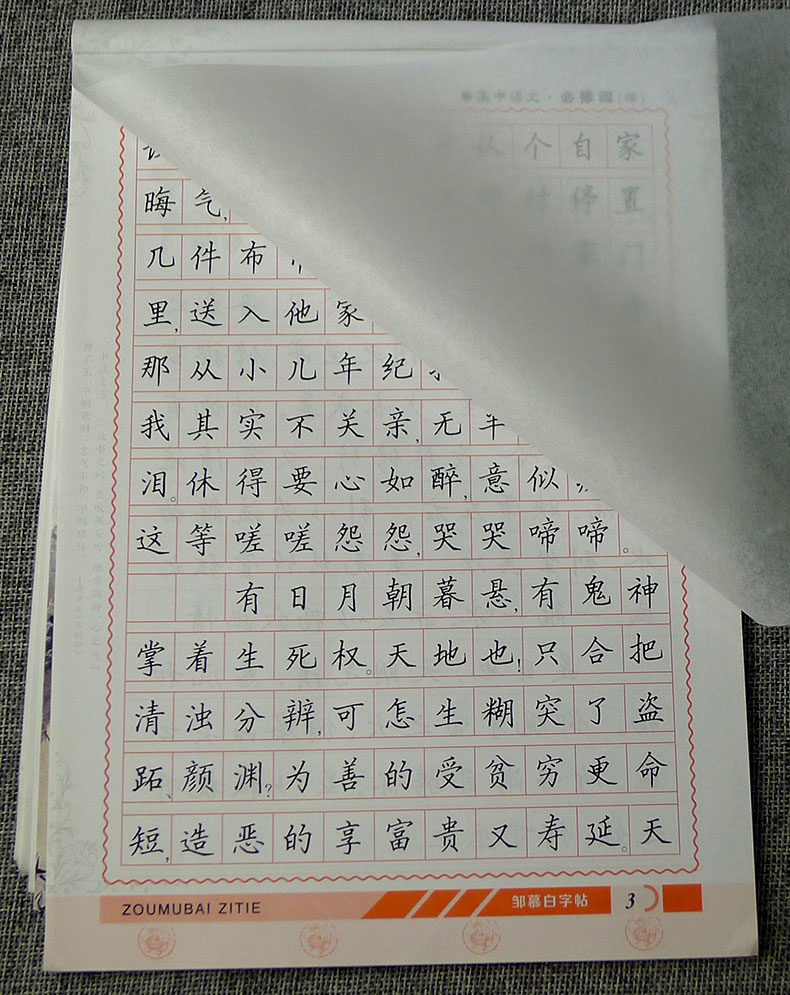 高中语文·必修四
认个自家
晦气,时停置
几件布门
里,送入他家
那从小儿年纪
我其实不关亲,无半
泪。休得要心如醉,意似
这等嗟嗟怨怨,哭哭啼啼。
有日月朝暮悬,有鬼神
掌着生死权。天地也!只合把
清浊分辨,可怎生糊突了盗
跖、颜渊?为善的受贫穷更命
短,造恶的享富贵又寿延。天
ZOUMUBAI ZITIE 邹慕白字帖 3